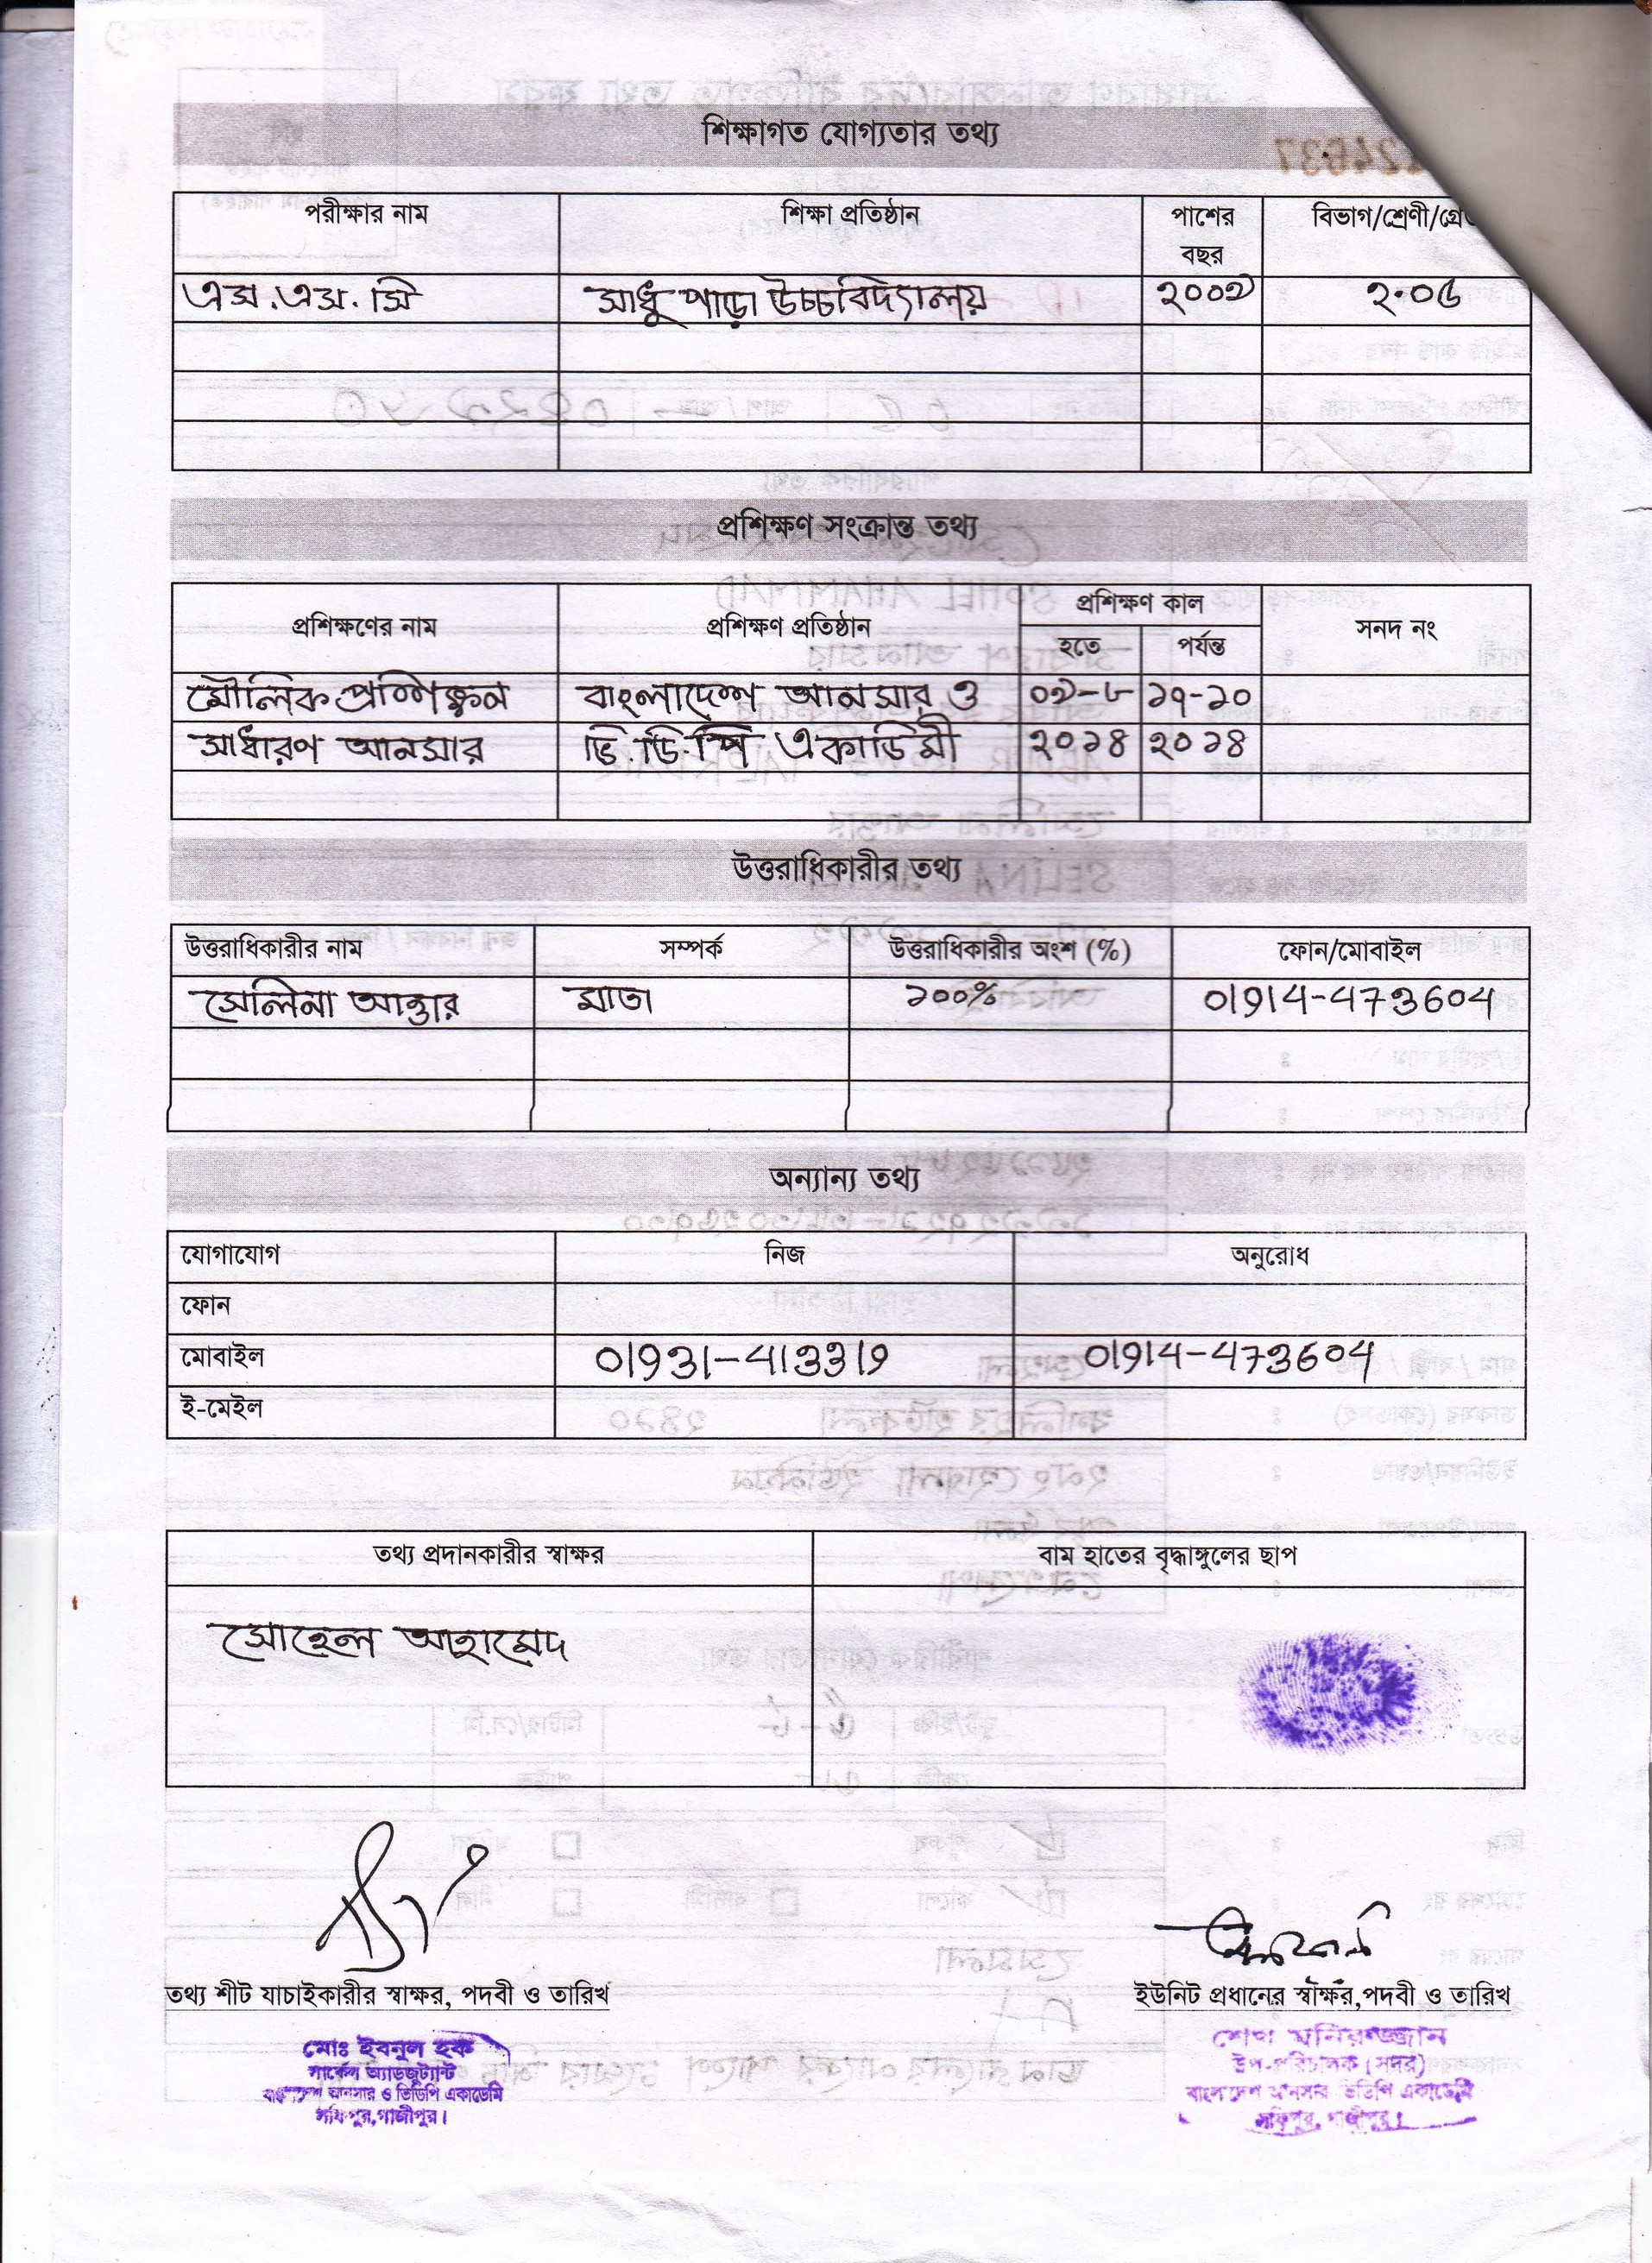 শিক্ষাগত যোগ্যতার তথ্য
পরীক্ষার নাম শিক্ষা প্রতিষ্ঠান পাশের বছর বিভাগ/শ্রেণী/গ্রে
এস.এস.সি সাধু পাড়া উচ্চবিদ্যালয় ২০০৯ ২.০৬
প্রশিক্ষণ সংক্রান্ত তথ্য
প্রশিক্ষণের নাম প্রশিক্ষণ প্রতিষ্ঠান প্রশিক্ষণ কাল সনদ নং
হতে পর্যন্ত
মৌলিক প্রশিক্ষন বাংলাদেশ আনসার ও ০৯-৮ ১৭-১০
সাধারণ আনসার ভি.ডি.পি একাডিমী ২০১৪ ২০১৪
উত্তরাধিকারীর তথ্য
উত্তরাধিকারীর নাম সম্পর্ক উত্তরাধিকারীর অংশ (%) ফোন/মোবাইল
সেলিনা আক্তার মাতা ১০০% 01914-473604
অন্যান্য তথ্য
যোগাযোগ নিজ অনুরোধ
ফোন
মোবাইল 01931-413319 01914-473604
ই-মেইল
তথ্য প্রদানকারীর স্বাক্ষর বাম হাতের বৃদ্ধাঙ্গুলের ছাপ
সোহেল আহামেদ
তথ্য শীট যাচাইকারীর স্বাক্ষর, পদবী ও তারিখ ইউনিট প্রধানের স্বাক্ষর,পদবী ও তারিখ
মোঃ ইবনুল হক
সার্কেল অ্যাডজুট্যান্ট
বাংলাদেশ আনসার ও ভিডিপি একাডেমি
সফিপুর, গাজীপুর।
শেখ মনিরুজ্জামান
উপ-পরিচালক (সদর)
বাংলাদেশ আনসার ভিডিপি একাডেমি
সফিপুর, গাজীপুর।